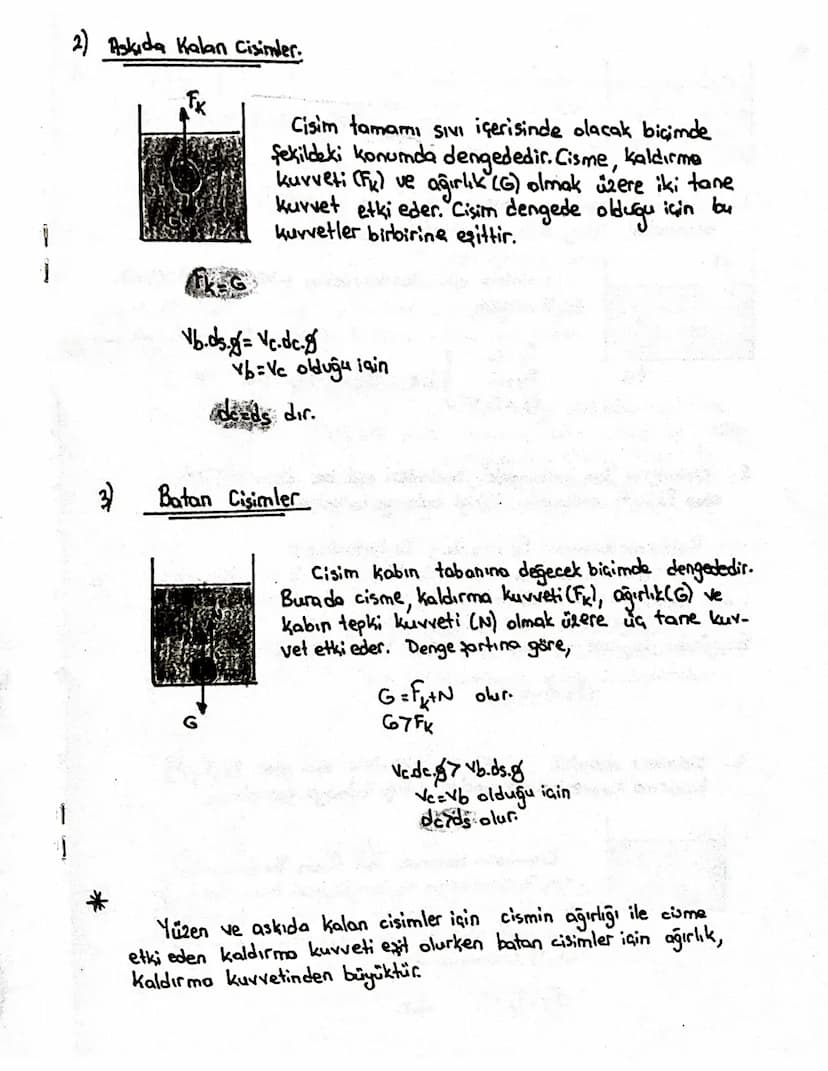 2) Askıda Kalan Cisimler.
FK
Cisim tamamı sıvı içerisinde olacak biçimde
şekildeki konumda dengededir. Cisme, kaldırma
kuvveti (FK) ve ağırlık (G) olmak üzere iki tane
kuvvet etki eder. Cisim dengede olduğu için bu
kuvvetler birbirine eşittir.
FK=G
Vb.ds.g = Vc.dc.g
Vb=Vc olduğu için
dc=ds dır.
3) Batan Cisimler
Cisim kabın tabanına değecek biçimde dengededir.
Burada cisme, kaldırma kuvveti (FK), ağırlık(G) ve
kabın tepki kuvveti (N) olmak üzere üç tane kuv-
vet etki eder. Denge şartına göre,
G = FK+N olur.
G>FK
G
Vc.dc.g > Vb.ds.g
Vc=Vb olduğu için
dc>ds olur.
*
Yüzen ve askıda kalan cisimler için cismin ağırlığı ile cisme
etki eden kaldırma kuvveti eşit olurken batan cisimler için ağırlık,
kaldırma kuvvetinden büyüktür.